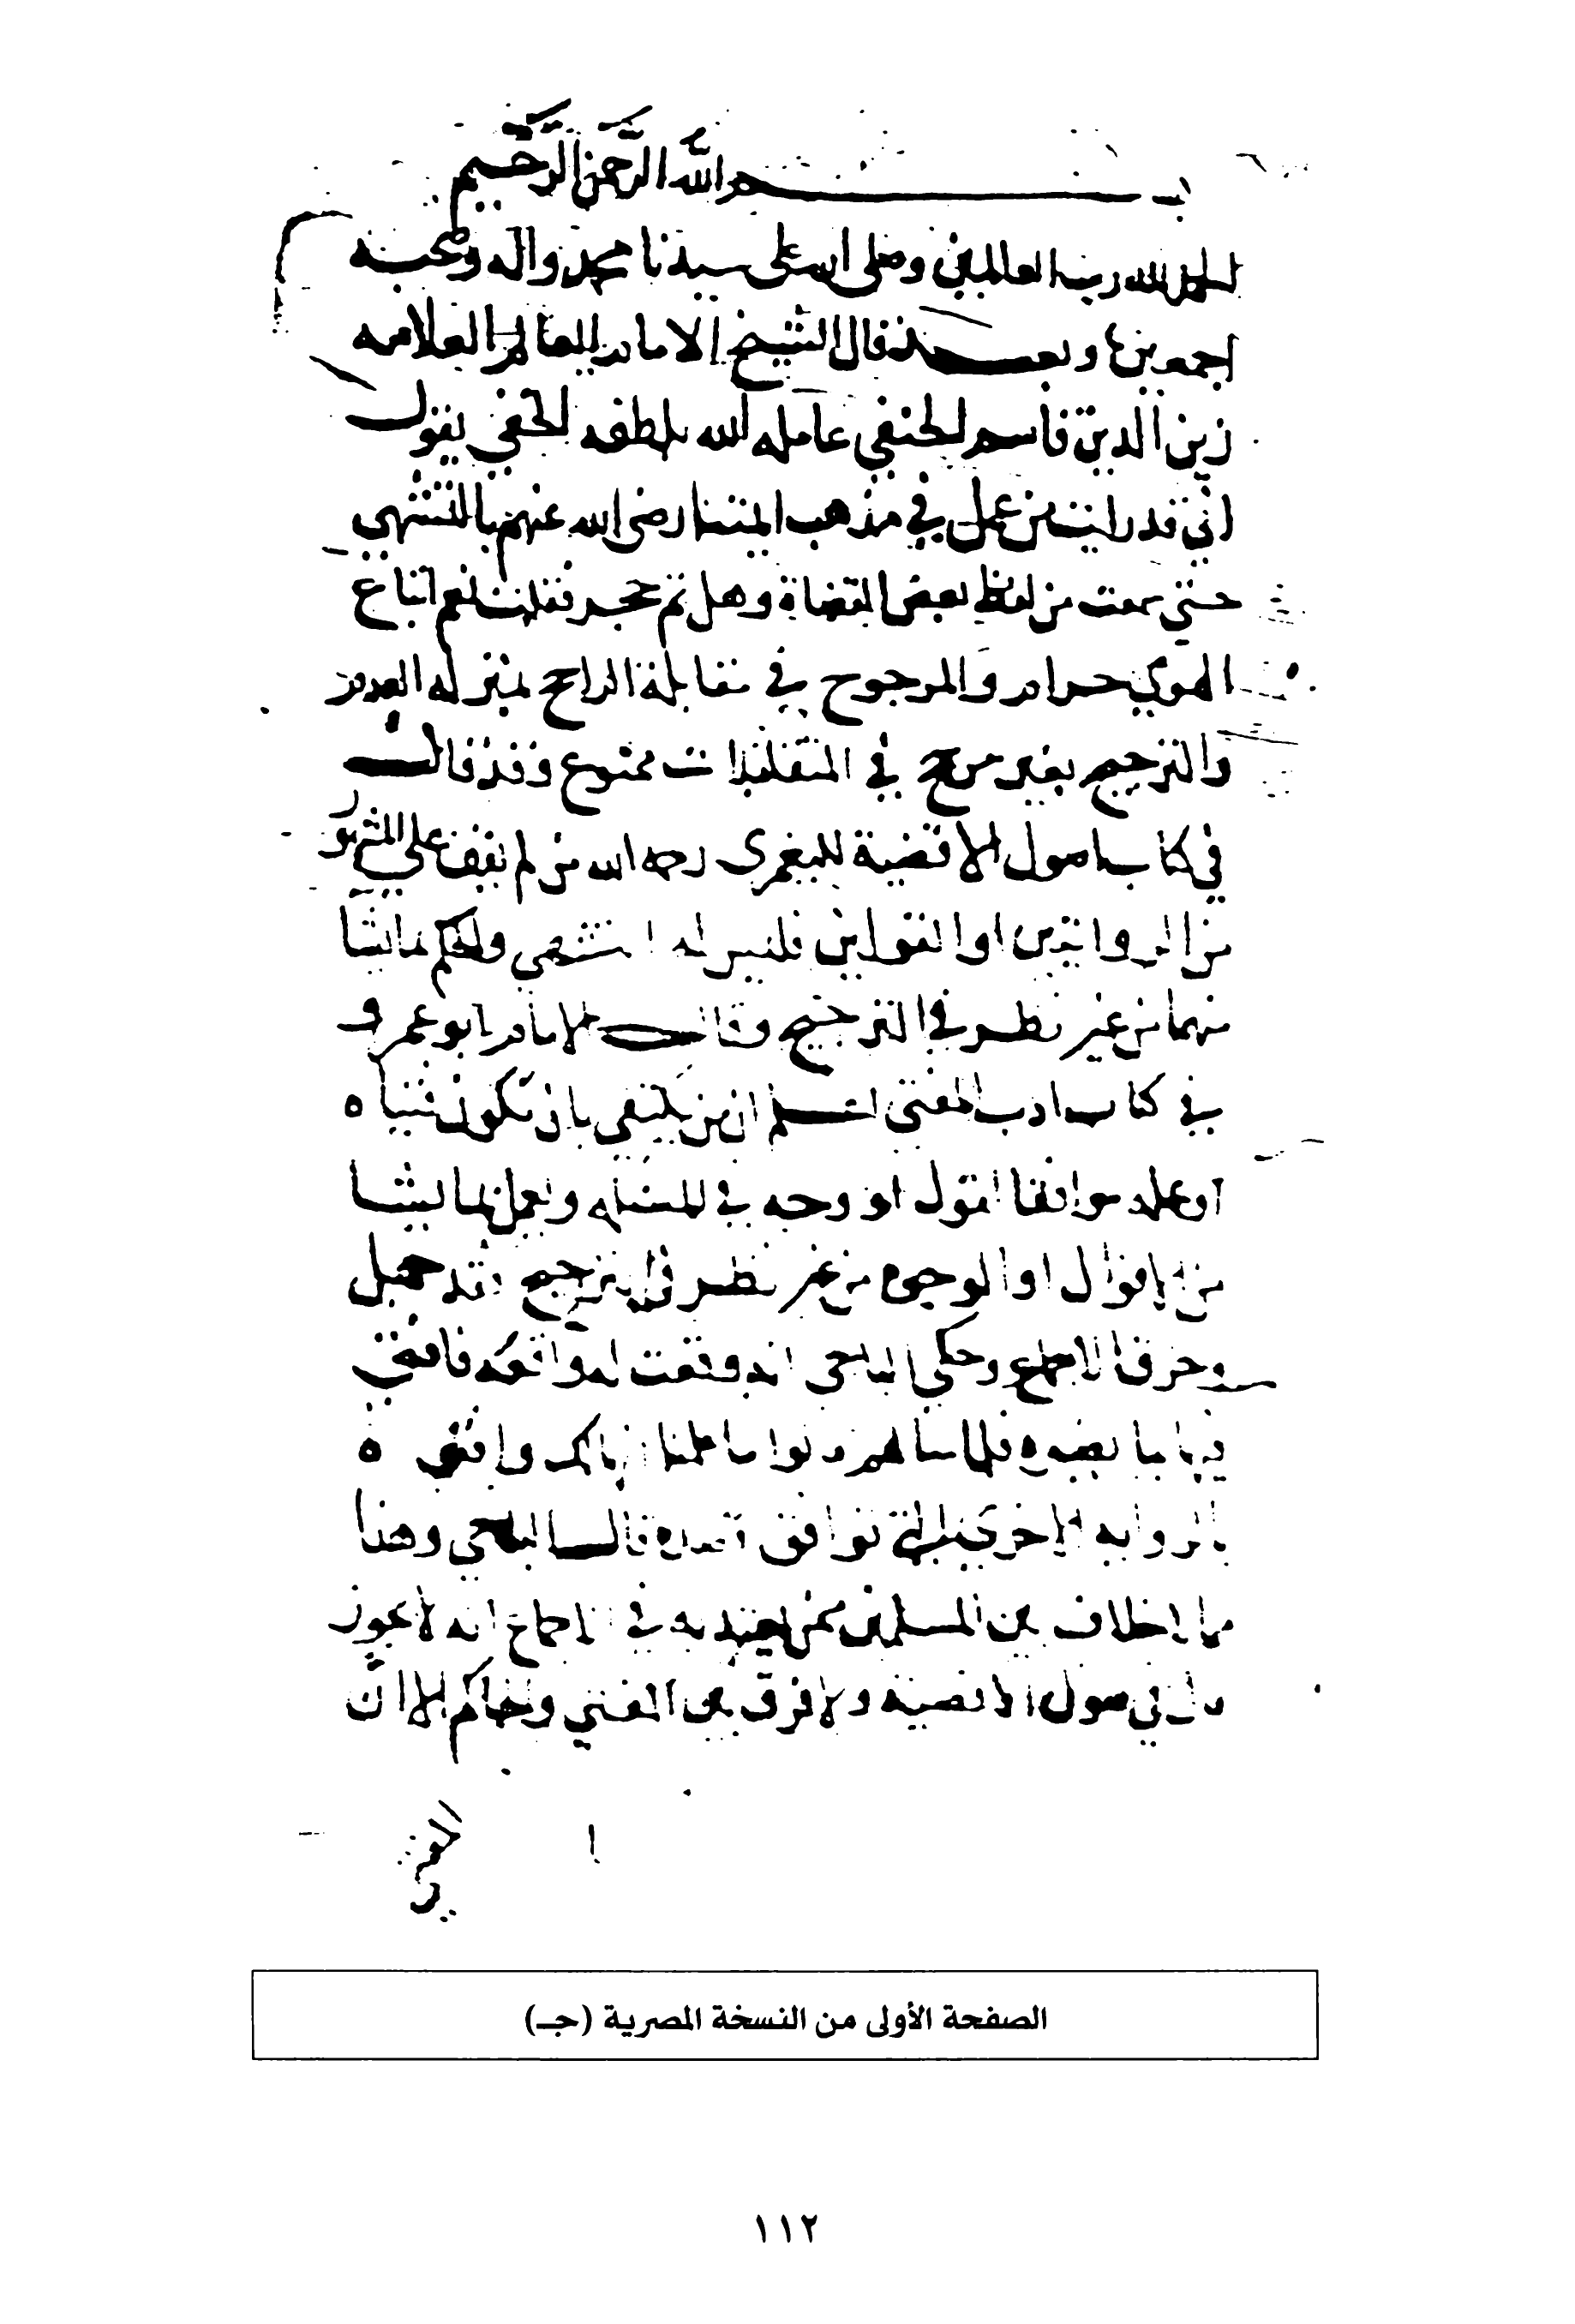 بسم الله الرحمن الرحيم
الحمد لله رب العالمين وصلى الله على سيدنا محمد واله وصحبه
اجمعين وبعد فقال الشيخ الامام العالم العلامه
زين الدين قاسم الحنفي عامله الله بلطفه الخفي يقول
اني قد رايت من عمل في مذهب ائمتنا رضى الله عنهم بالتشهي
حتى سمعت من لفظ بعض القضاة وهل ثم حجر فقلت نعم اتباع
الهوى حرام والمرجوح في مقابلة الراجح بمنزله العدم
والترجيح بغير مرجح في المتقابلات ممنوع وقد قال
في كتاب اصول الاقضية لليعمري رحمه الله من لم يقف على المشهور
من الروايتين او القولين فليس له التشهي والحكم بما شا
منهما من غير نظر في الترجيح وقال الامام ابو عمرو
في كتاب ادب المفتي اعلم ان من يكتفي بان تكون فتياه
او عمله موافقا لقول او وجه في المسئله ويعمل بما يشا
من الاقوال او الوجوه من غير نظر في الترجيح فقد جهل
وخرق الاجماع وحكى الباجي انه وقعت له واقعه فافتى
فيها بما يضره فلما سالهم قالوا ما علمنا انها لك وافتى
بالروايه الاخرى التي توافق قصده قال الباجي وهذا
مما لا خلاف بين المسلمين ممن يعتد به في الاجماع انه لا يجوز
قال في اصول الاقضية ولا فرق بين المفتي والحاكم الا ان
المفتي
الصفحة الأولى من النسخة المصرية (جـ)
١١٢